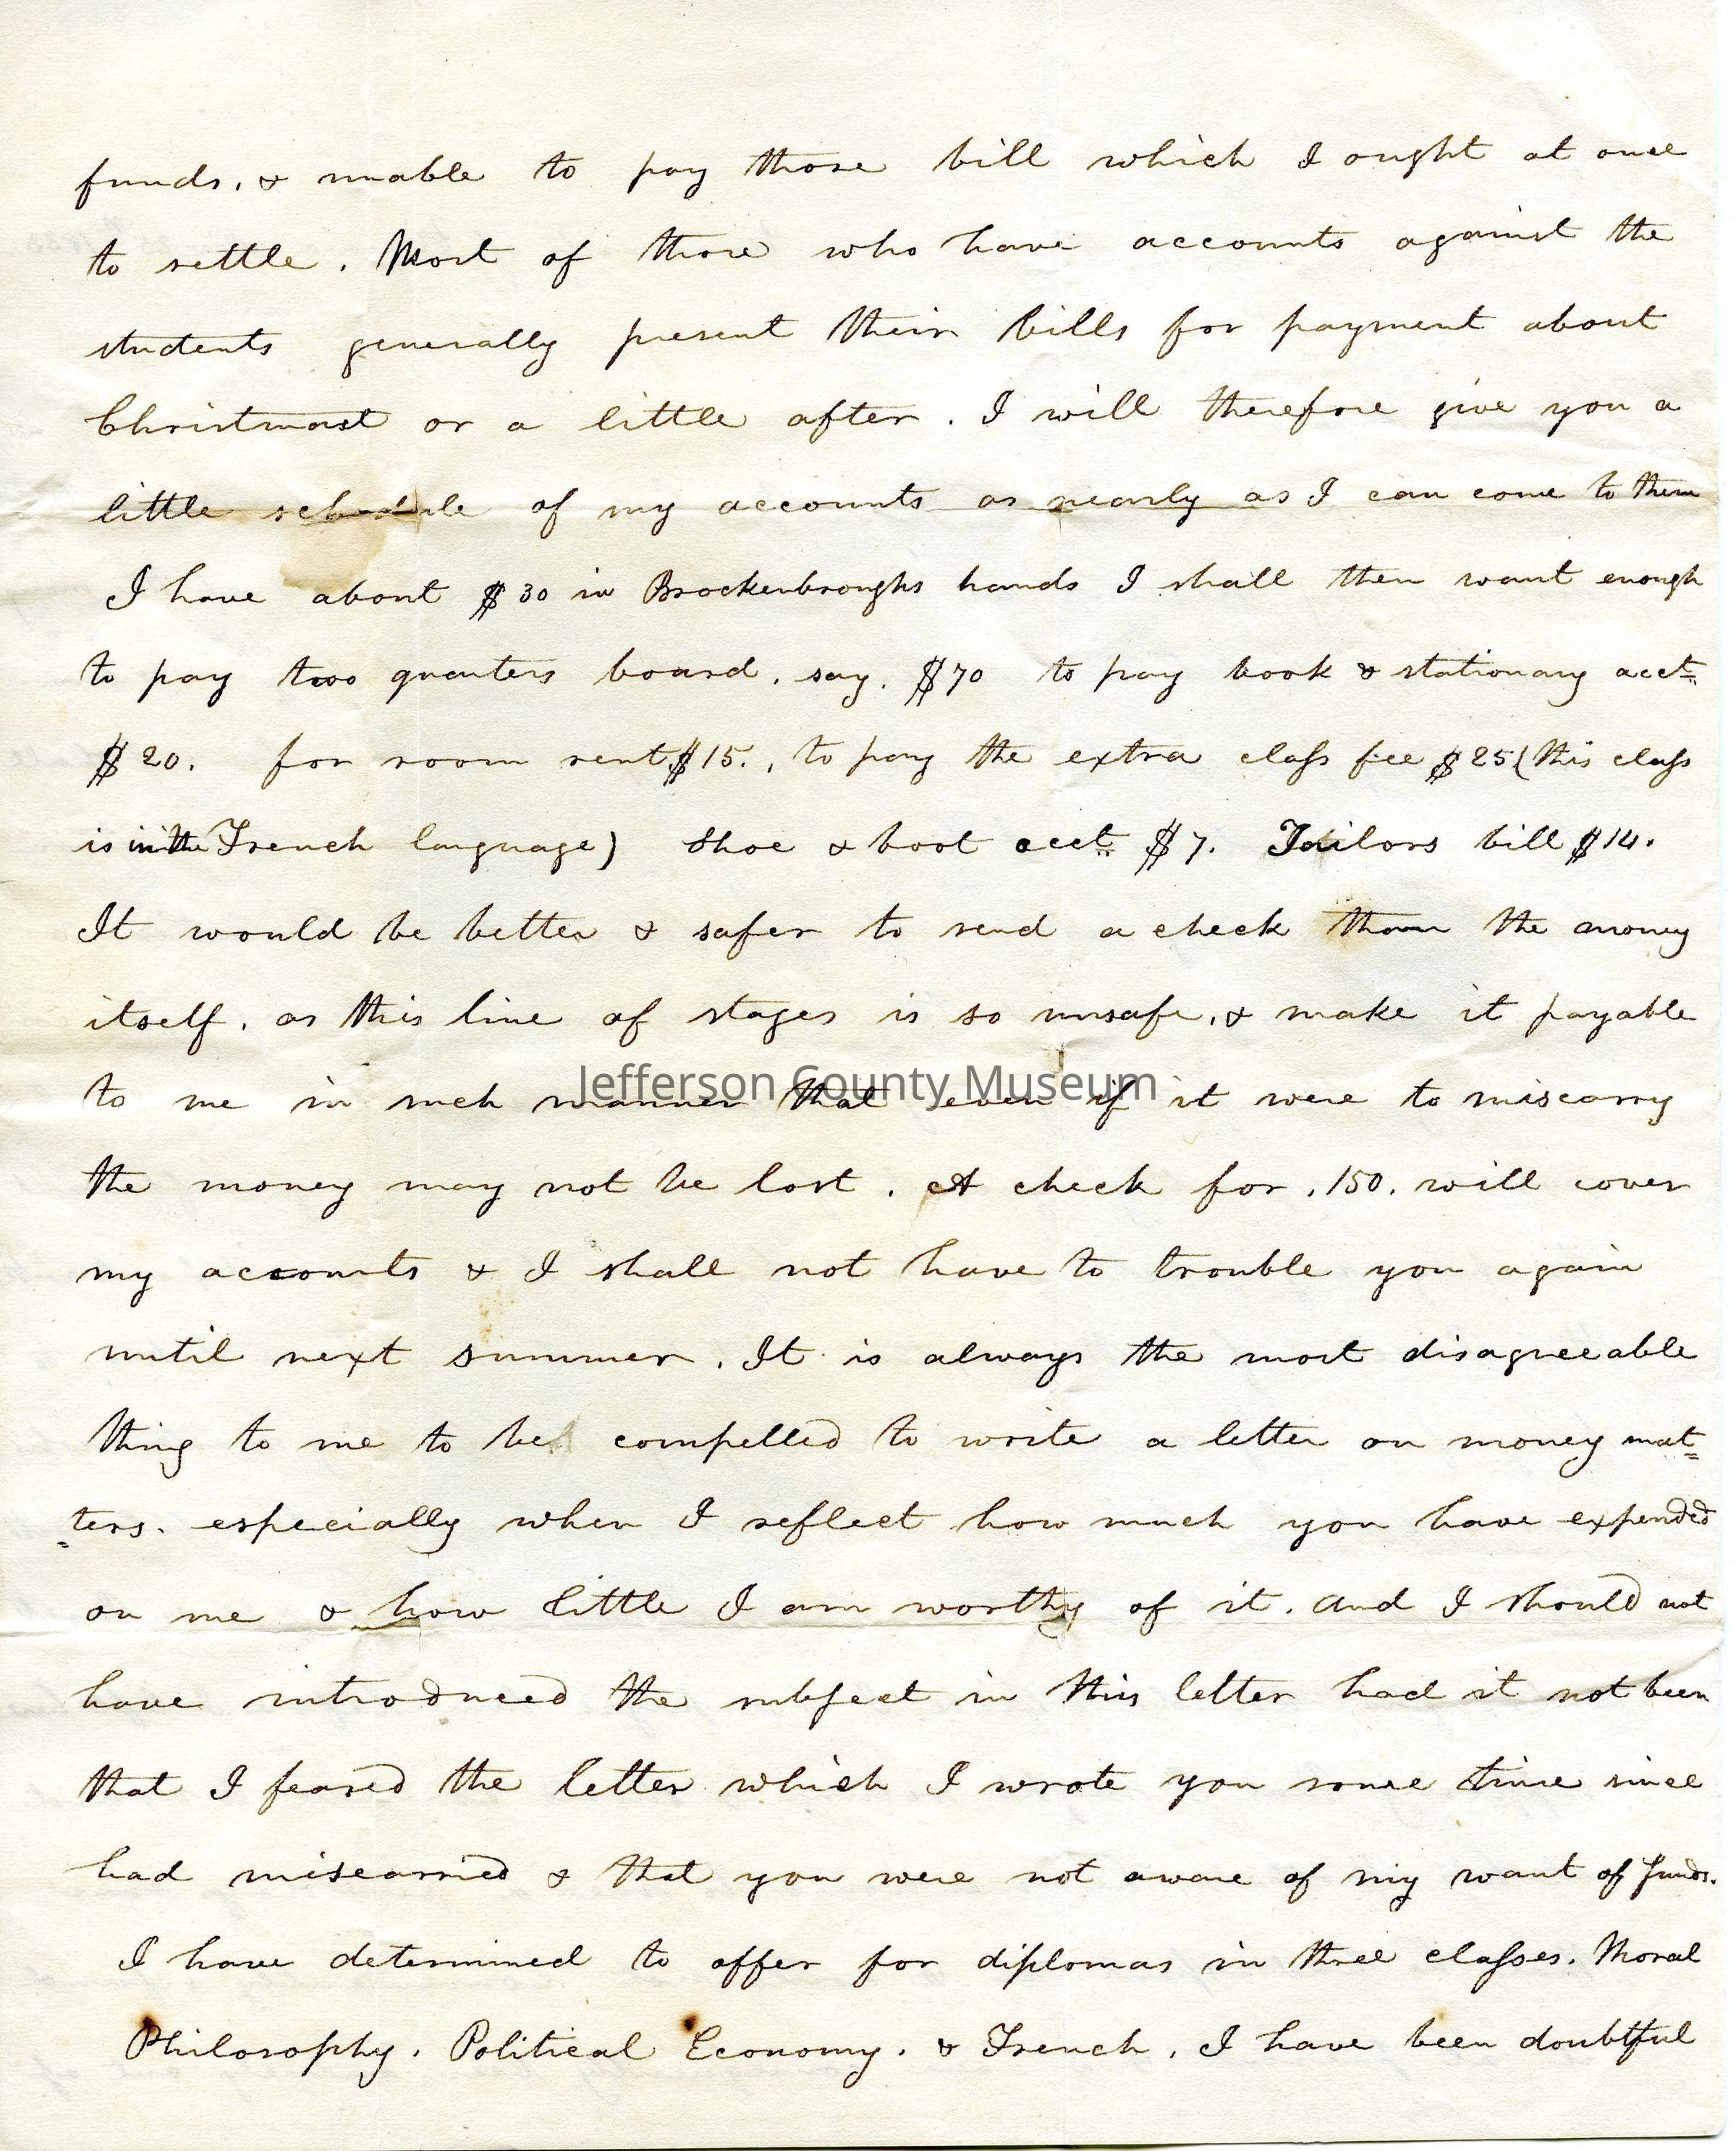 funds, & unable to pay those bill which I ought at once
to settle. Most of those who have accounts against the
students generally present their bills for payment about
Christmast or a little after. I will therefore give you a
little schedule of my accounts as nearly as I can come to them
I have about $30 in Brockenbroughs hands I shall then want enough
to pay two quarters board, say, $70 to pay book & stationary acct
$20. for room rent $15., to pay the extra class fee $25 (this class
is in the French language) Shoe & boot acct $7. Tailors bill $14.
It would be better & safer to send a check than the money
itself, as this line of stages is so unsafe, & make it payable
Jefferson County Museum
to me in such manner that even if it were to miscarry
the money may not be lost. A check for .150. will cover
my accounts & I shall not have to trouble you again
until next summer. It is always the most disagreeable
thing to me to be compelled to write a letter on money mat=
=ters. especially when I reflect how much you have expended
on me & how little I am worthy of it. and I should not
have introduced the subject in this letter had it not been
that I feared the letter which I wrote you some time since
had miscarried & that you were not aware of my want of funds.
I have determined to offer for diplomas in three classes. Moral
Philosophy. Political Economy. & French. I have been doubtful